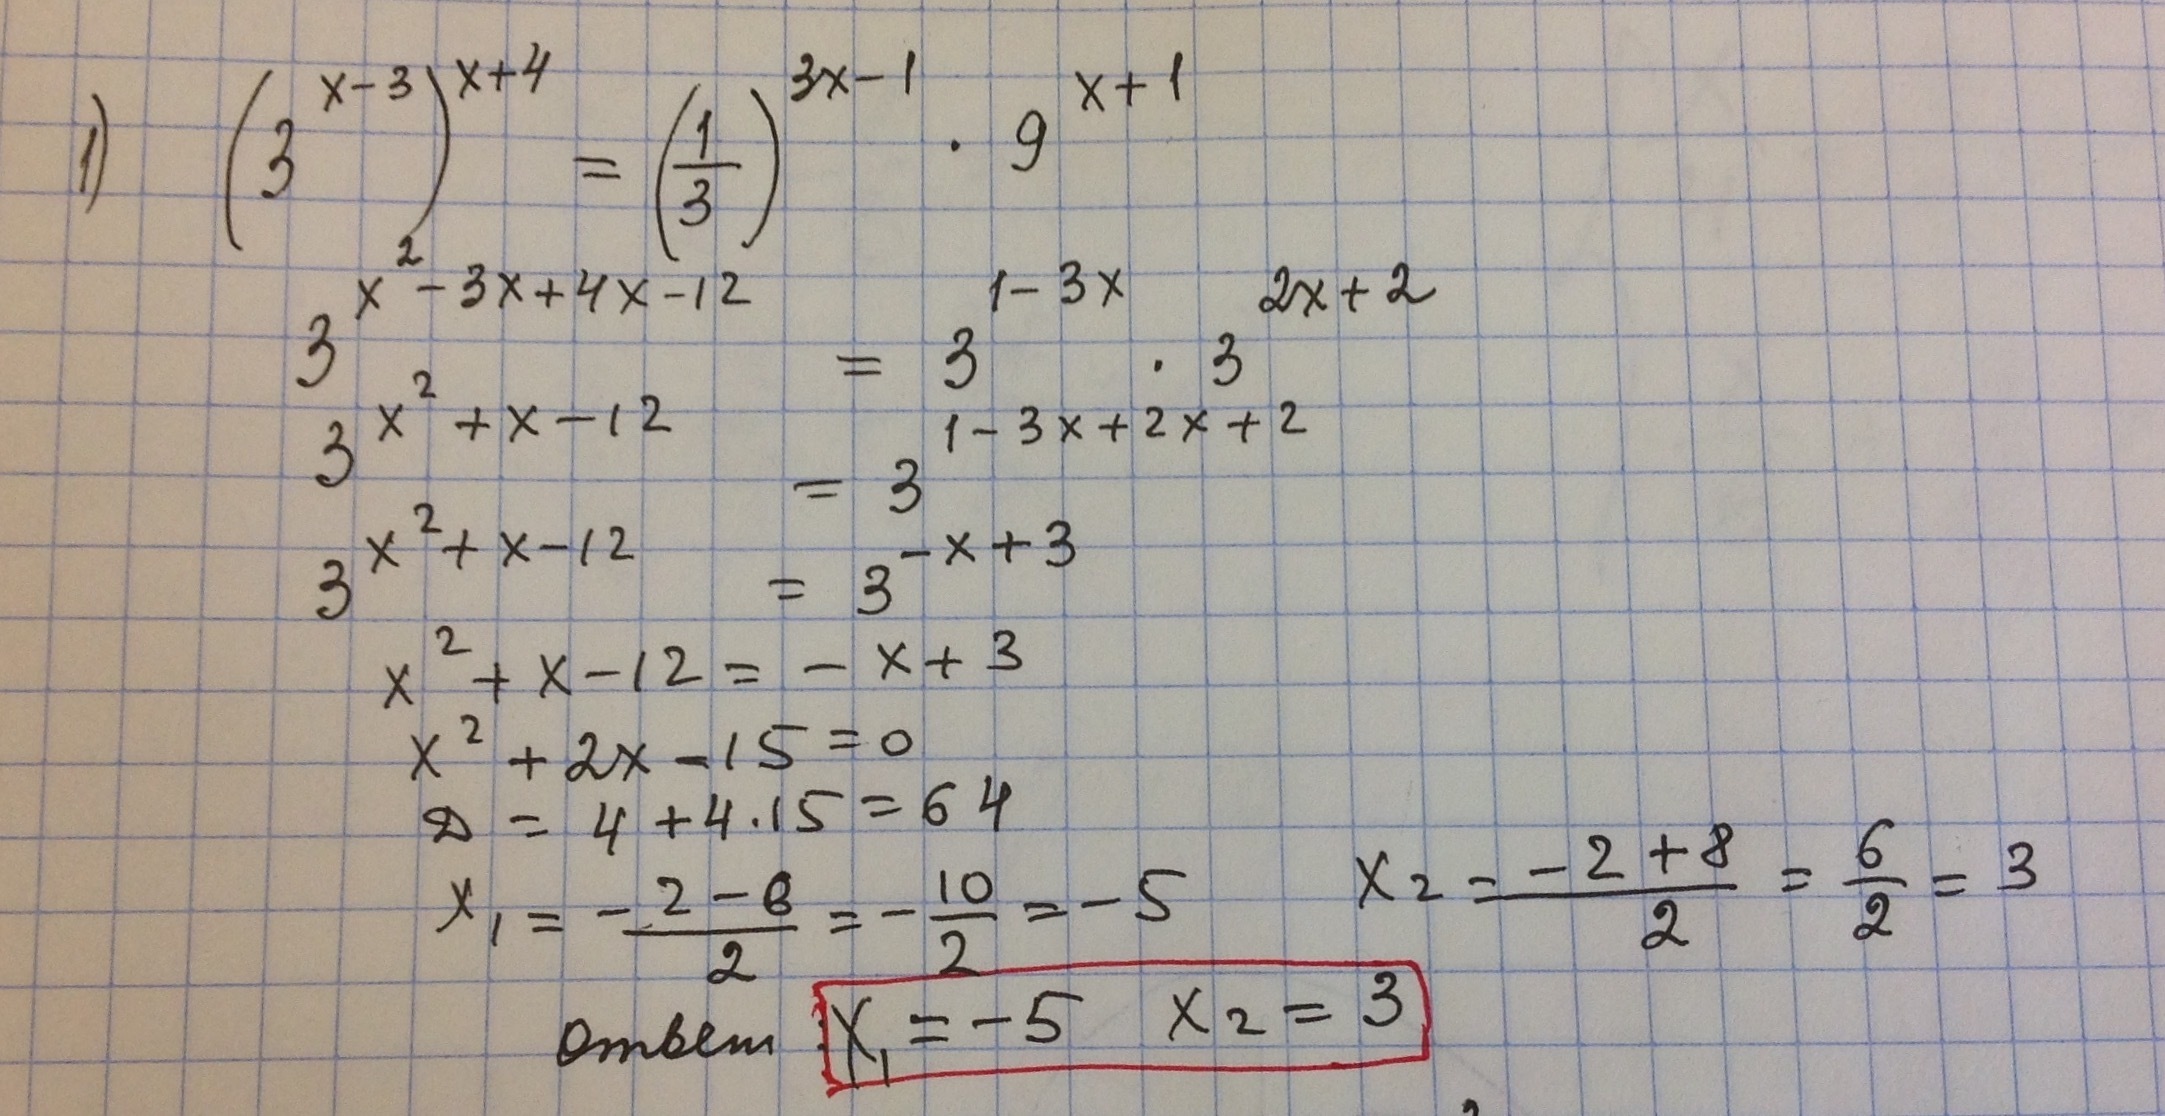 1) (3^{x-3})^{x+4} = (1/3)^{3x-1} · 9^{x+1}
3^{x²-3x+4x-12} = 3^{1-3x} · 3^{2x+2}
3^{x²+x-12} = 3^{1-3x+2x+2}
3^{x²+x-12} = 3^{-x+3}
x²+x-12 = -x+3
x²+2x-15=0
D = 4+4·15=64
x₁ = (-2-8)/2 = -10/2 = -5 x₂ = (-2+8)/2 = 6/2 = 3
Ответ: x₁ = -5 x₂ = 3